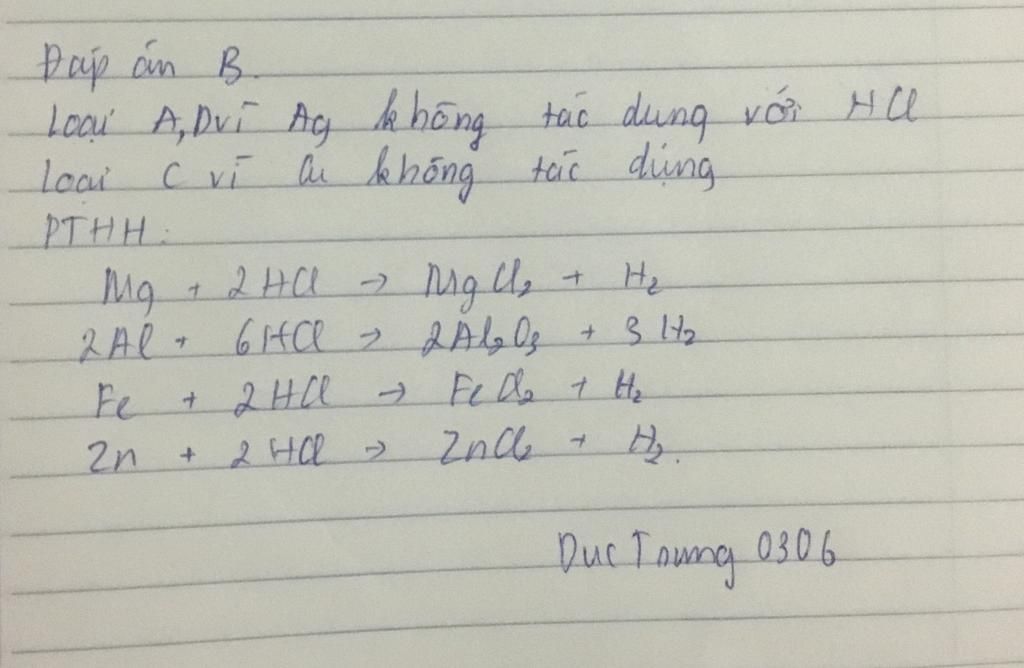 Đáp án B.
Loại A, D vì Ag không tác dụng với HCl
Loại C vì Cu không tác dụng
PTHH:
Mg + 2HCl → MgCl₂ + H₂
2Al + 6HCl → 2Al₂O₃ + 3H₂
Fe + 2HCl → FeCl₂ + H₂
Zn + 2HCl → ZnCl₂ + H₂.
Duc Trung 0306